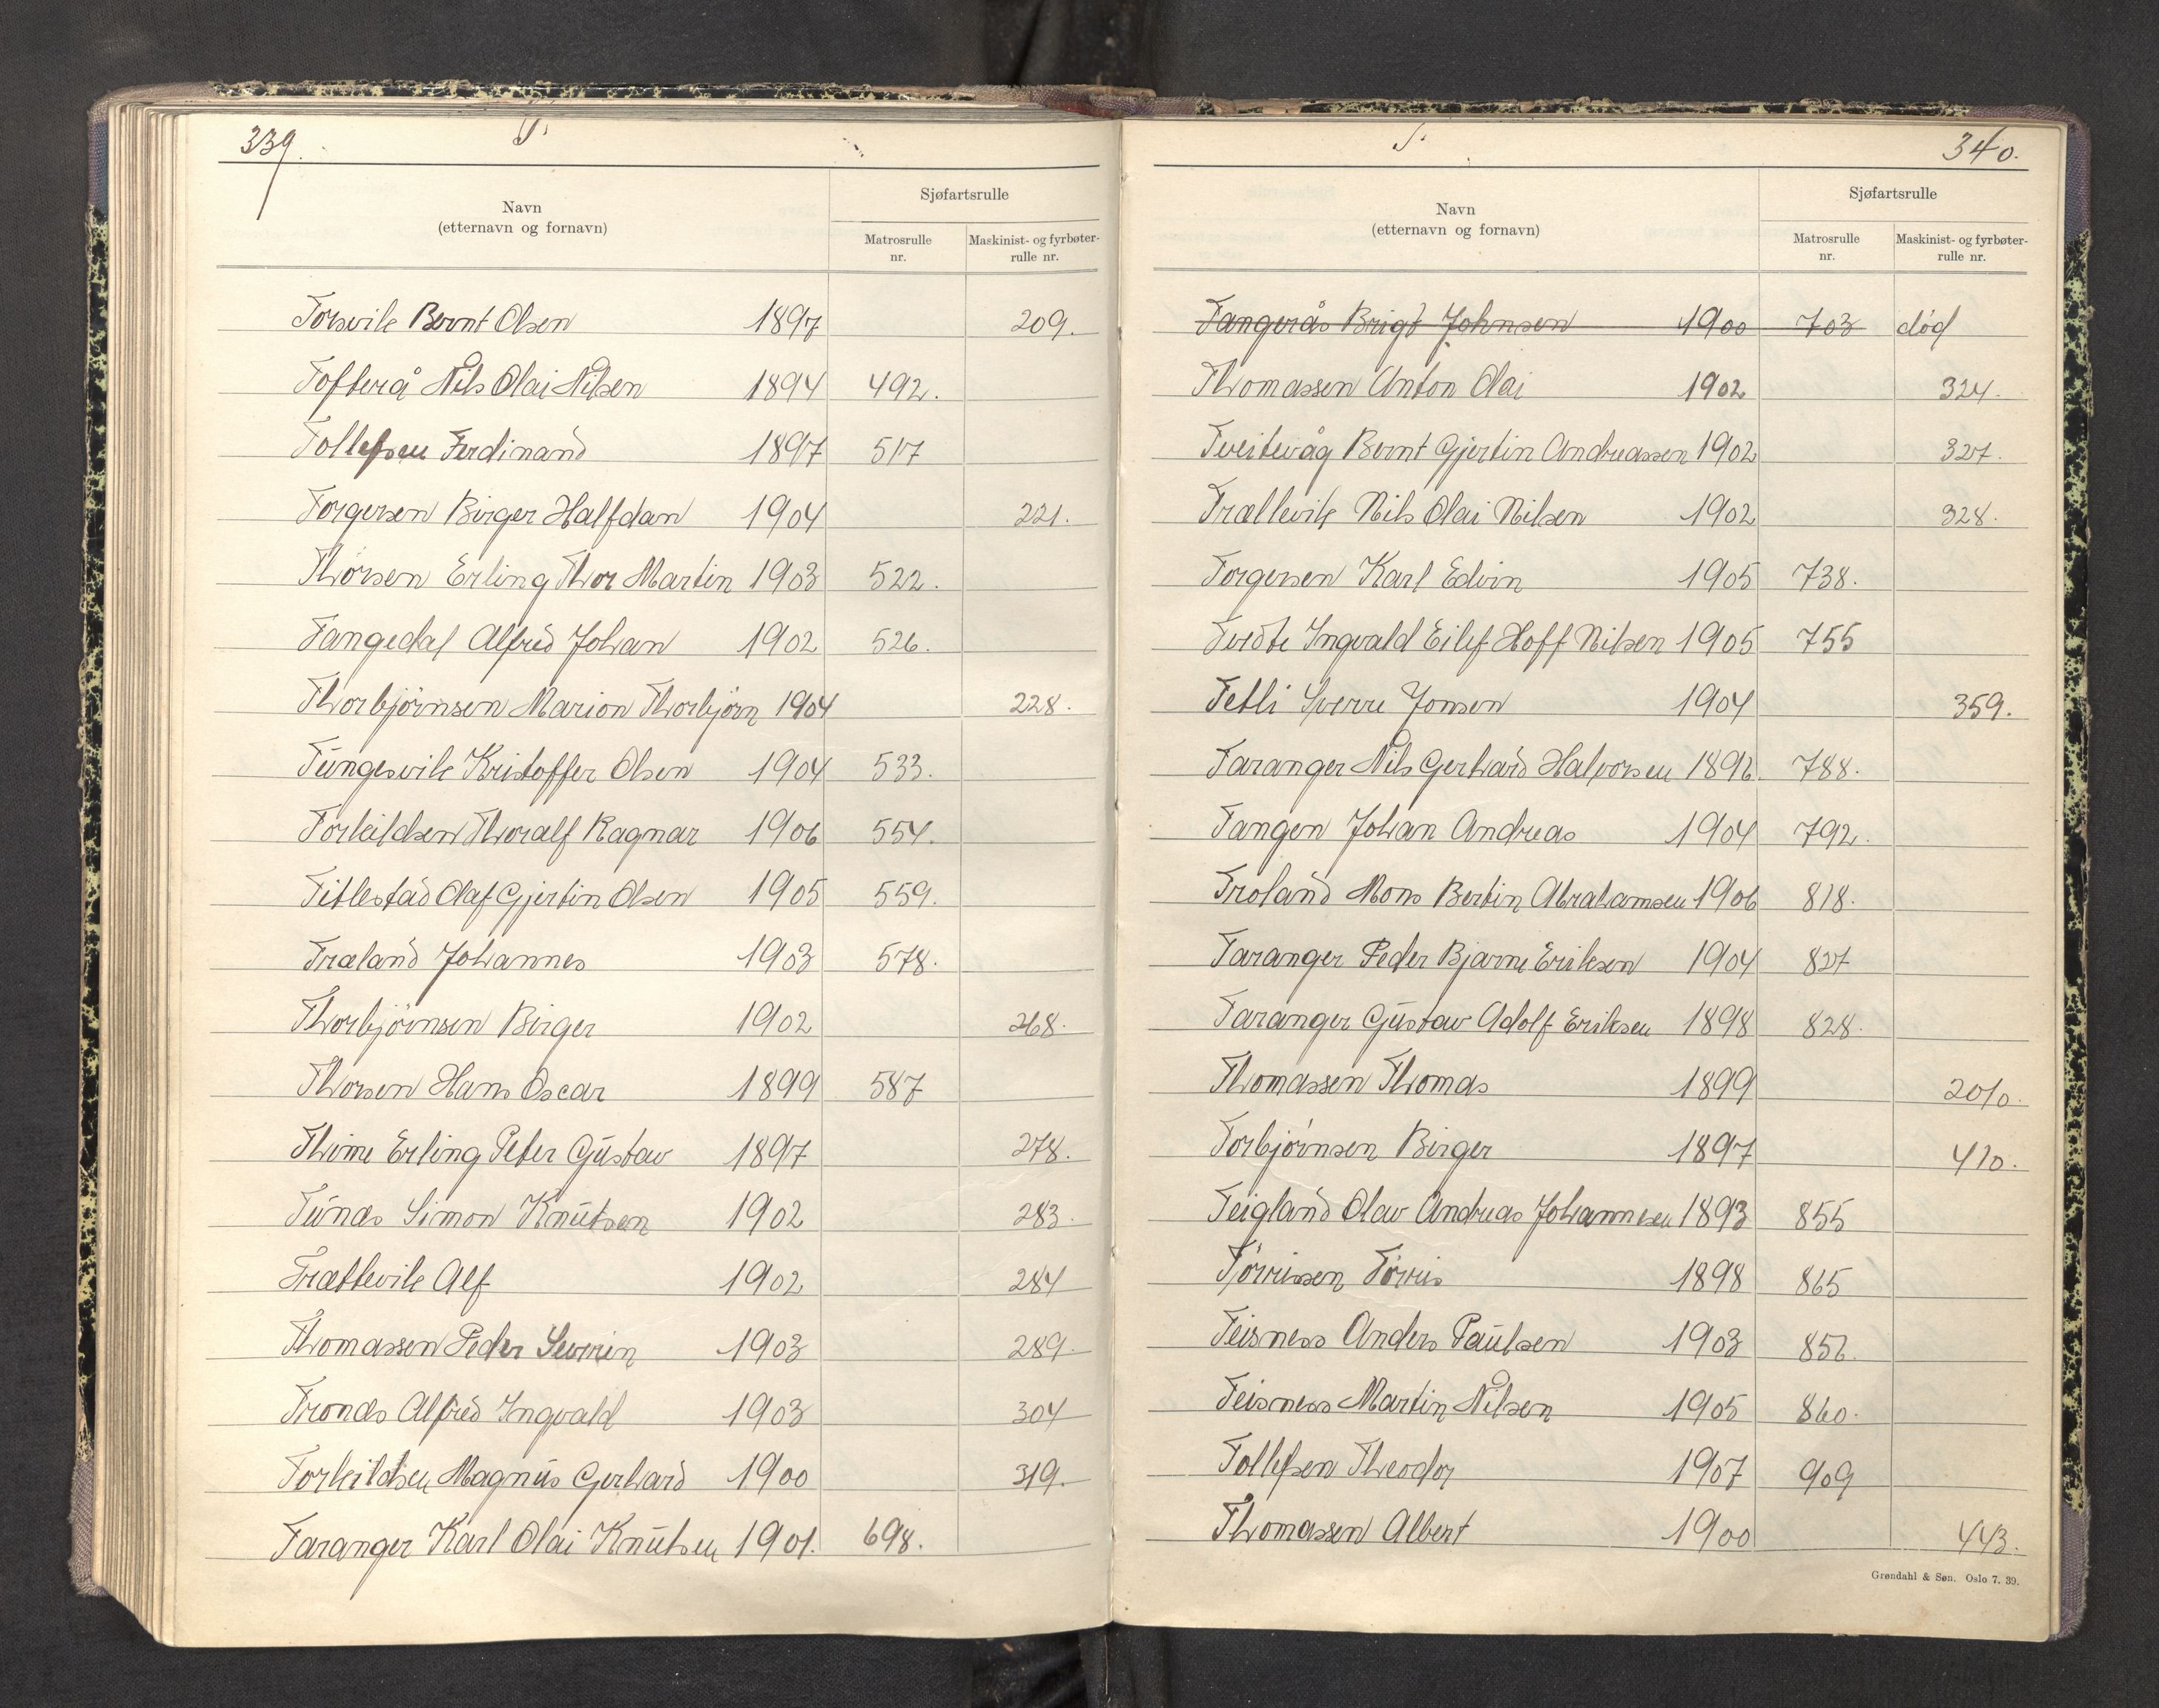 339.
T.
Navn
(etternavn og fornavn)
Sjøfartsrulle
Matrosrulle nr.
Maskinist- og fyrbøter-rulle nr.
Torsvik Bernt Olsen 1897 209.
Tofterå Nils Olai Nilsen 1894 492.
Tollefsen Ferdinand 1897 517
Torgersen Birger Halfdan 1904 221.
Thorsen Erling Thor Martin 1903 522.
Tangedal Alfred Johan 1902 526.
Thorbjörnsen Marion Thorbjörn 1904 228.
Tungesvik Kristoffer Olsen 1904 533.
Torkildsen Thoralf Ragnar 1906 554.
Titlestad Olaf Gjertin Olsen 1905 559.
Træland Johannes 1903 578.
Thorbjörnsen Birger 1902 268.
Thorsen Hans Oscar 1899 587
Thime Erling Peter Gustav 1897 278.
Tunæs Simon Knutsen 1902 283.
Trættevik Alf 1902 284
Thomassen Peder Severin 1903 289.
Tronæs Alfred Ingvald 1903 304
Torkildsen Magnus Gerhard 1900 319.
Taranger Karl Olai Knutsen 1901. 698.
T.
340.
Navn
(etternavn og fornavn)
Sjøfartsrulle
Matrosrulle nr.
Maskinist- og fyrbøter-rulle nr.
Tangerås Brigt Johnsen 1900 703 død
Thomassen Anton Olai 1902 324.
Tveitevåg Bernt Gjertin Andreassen 1902 327.
Trællevik Nils Olai Nilsen 1902 328.
Torgersen Karl Edvin 1905 738.
Tvedte Ingvald Eilef Hoff Nilsen 1905 755
Tetli Sverre Jonsen 1904 359.
Taranger Nils Gerhard Halvorsen 1896 788.
Tangen Johan Andreas 1904 792.
Troland Mons Bertin Abrahamsen 1906 818.
Taranger Peder Bjarne Eriksen 1904 827
Taranger Gustav Adolf Eriksen 1898 828.
Thomassen Thomas 1899
Torbjörnsen Birger 1897 410.
Teigland Olav Andreas Johannesen 1893 855
Tørrissen Tørris 1898 865
Teisness Anders Paulsen 1903 856
Teisness Martin Nilsen 1905 860.
Tollefsen Theodor 1907 909
Thomassen Albert 1900 443.
Grøndahl & Søn. Oslo 7. 39.